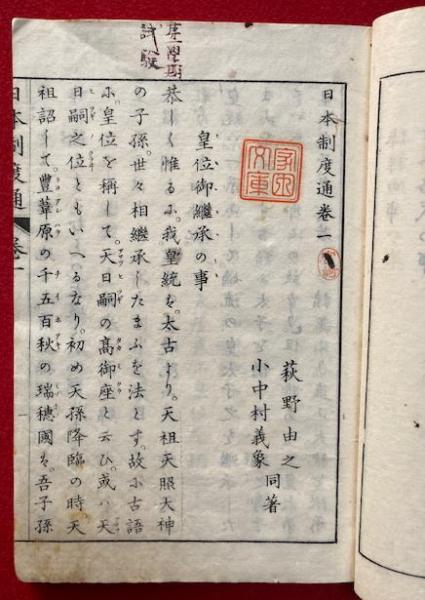 日本制度通卷一
萩野由之
小中村義象 同著
文庫
皇位御繼承の事
恭しく惟るに。我皇統は。太古より。天祖天照大神
の子孫。世々相繼承したまふを法とす。故に古語
に皇位を稱して。天日嗣の高御座と云ひ。或ハ天
日嗣之位ともいへるなり。初め天孫降臨の時。天
祖詔して。豐葦原の千五百秋の瑞穗國は。吾子孫
壹學期
試驗
日本制度通 卷一